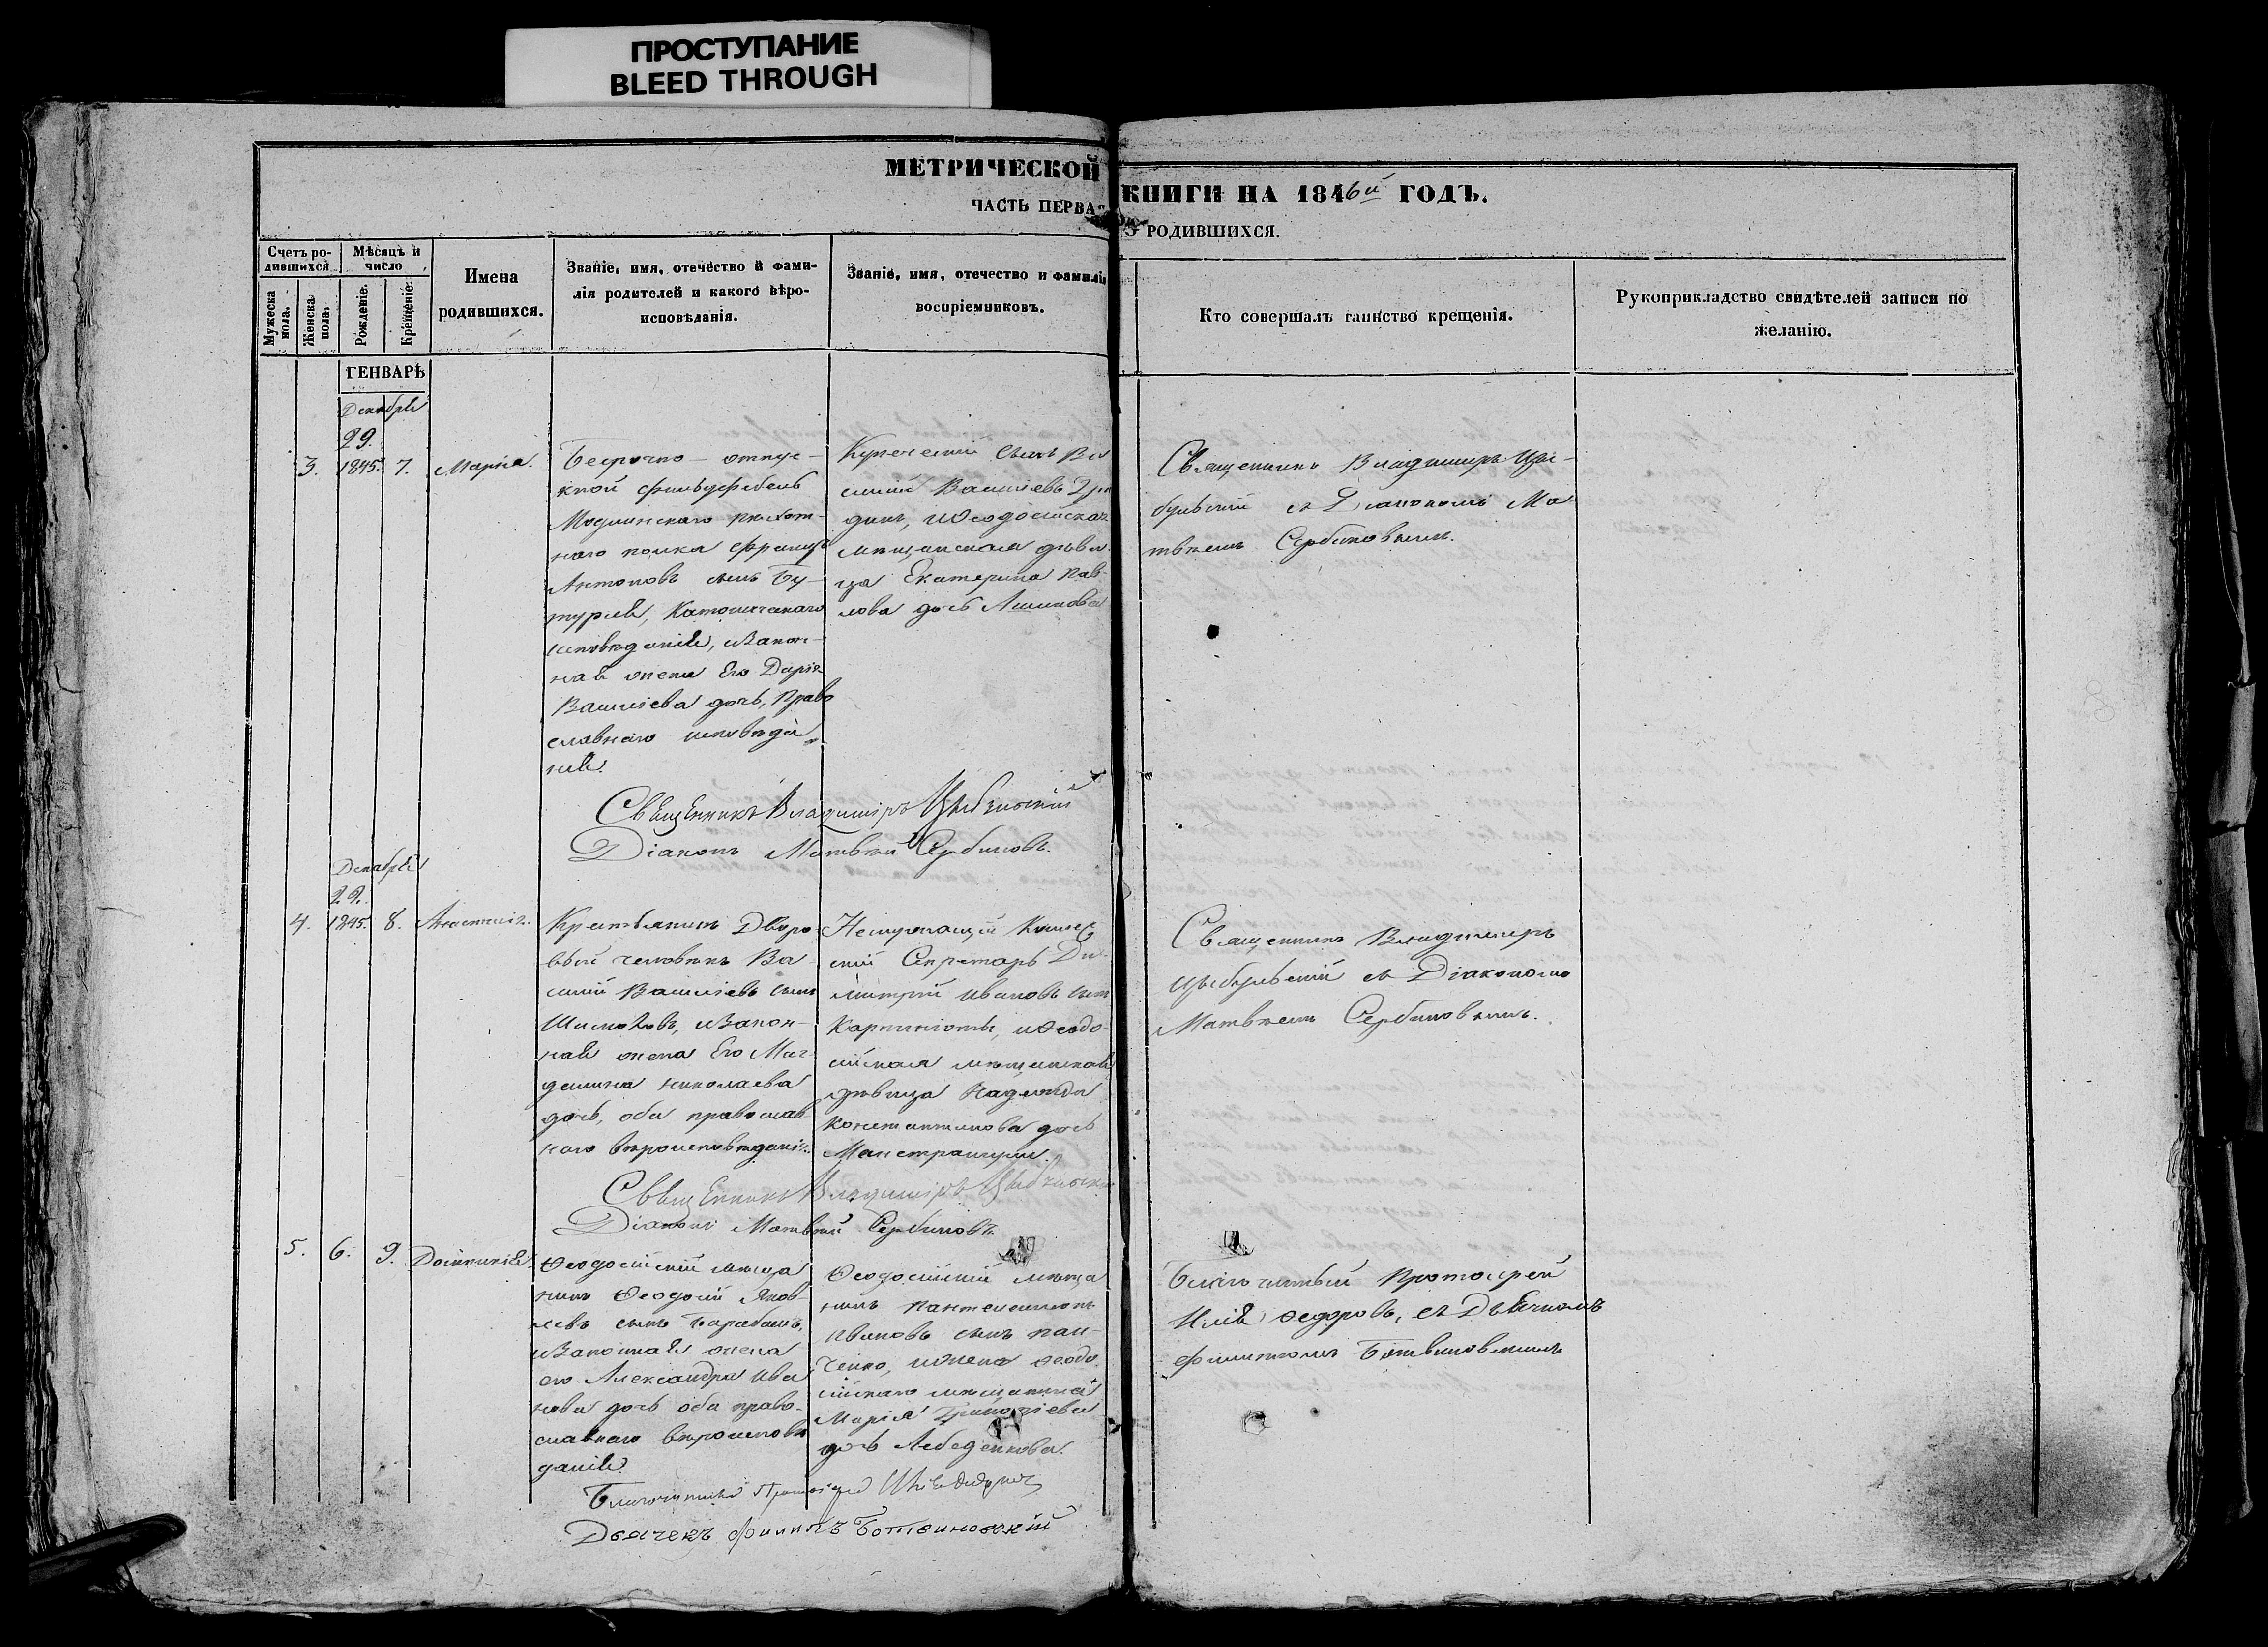 ПРОСТУПАНИЕ
BLEED THROUGH
МЕТРИЧЕСКОЙ КНИГИ НА 1846й ГОДЪ.
ЧАСТЬ ПЕРВАЯ О РОДИВШИХСЯ.
Счетъ родившихся
Мужеска пола.
Женска пола.
Мѣсяцъ и число
Рожденіе.
Крещеніе.
Имена родившихся.
Званіе, имя, отечество и фами-
лія родителей и какого вѣро-
исповѣданія.
Званіе, имя, отечество и фамилія
воспріемниковъ.
Кто совершалъ таинство крещенія.
Рукоприкладство свидѣтелей записи по
желанію.
ГЕНВАРЬ
Декабря
29.
3. 1845. 7. Марія.
Безсрочно-отпус-
кной фельдфебель
Модлинскаго пѣхот-
наго полка Францъ
Антоновъ сынъ
Католическаго
исповѣданія, и закон-
ная жена Его Дарія
Васильева дочь, Право
славнаго исповѣда-
нія.
Купеческій сынъ Ва
силий Васильевъ
и Ѳеодосійская
мѣщанская дѣви-
ца Екатерина Пав-
лова дочь
Священникъ Владимиръ Цы-
бульскій съ Діакономъ Ма
твѣемъ Сербиновымъ.
Священникъ Владиміръ Цыбульскій
Діаконъ Матвѣй Сербиновъ.
Декабря
22.
4. 1845. 8. Анастасія.
Крестьянинъ Дворо-
вый человѣкъ Ва-
силий Васильевъ сынъ
и закон-
ная жена Его Маг-
далина Николаева
дочь, оба православ-
наго вѣроисповѣданія.
Секретарь Ди-
митрій Ивановъ сынъ
и Ѳеодо-
сійская мѣщанская
дѣвица Надежда
Константинова дочь
Священникъ Владимиръ
Цыбульскій съ Діакономъ
Матвѣемъ Сербиновымъ.
Священникъ Владиміръ Цыбульскій
Діаконъ Матвѣй Сербиновъ.
5. 6. 9. Домникія.
Ѳеодосійскій мѣща
нинъ Ѳеодосій Яков-
левъ сынъ Барабашъ,
и законная жена
его Александра Ива
нова дочь оба право-
славнаго вѣроисповѣ
данія.
Ѳеодосійскій мѣща
нинъ Пантелеимонъ
Ивановъ сынъ Пан-
ченко, и жена Ѳеодо
сійскаго мѣщанина
Марія
дочь Лебеденкова.
Благочинный Протоіерей
Илія Федоровъ, съ Дьячкомъ
Филиппомъ Ботвиновскимъ
Благочинный Протоіерей Илія Федоровъ
Дьячекъ Филиппъ Ботвиновскій